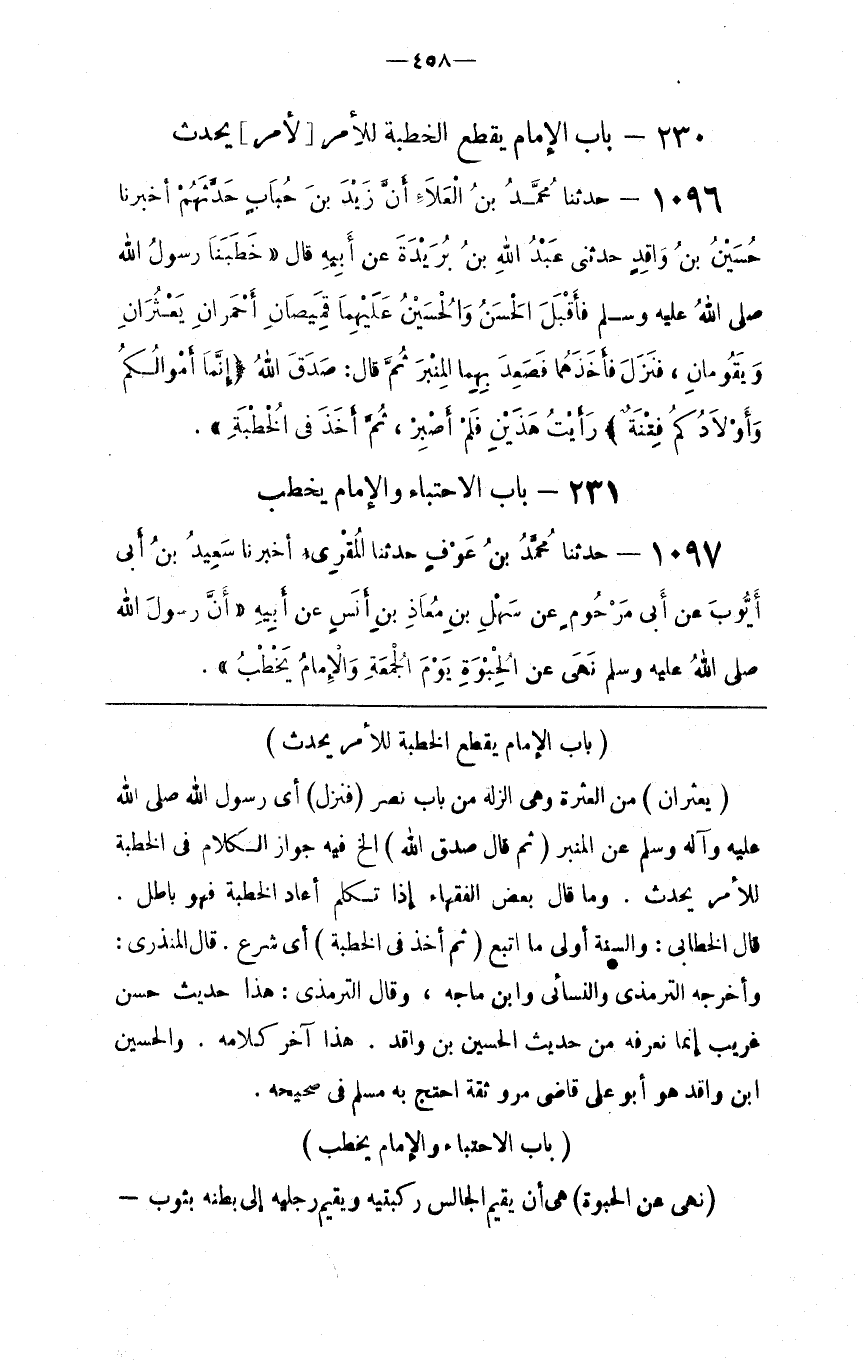 —٤٥٨—
٢٣٠ — باب الإمام يقطع الخطبة للأمر [لأمر] يحدث
١٠٩٦ — حدثنا مُحمَّدُ بنُ الْعَلَاءِ أنَّ زَيْدَ بنَ حُبَابٍ حَدَّثَهُمْ أخبرنا
حُسَيْنُ بنُ وَاقِدٍ حدثنى عَبْدُ اللهِ بنُ بُرَيْدَةَ عن أَبِيهِ قال « خَطَبَنَا رسولُ الله
صلى اللهُ عليه وسلم فأَقْبَلَ الْحَسَنُ وَالْحُسَيْنُ عَلَيْهِمَا قَمِيصَانِ أَحْمَرانِ يَعْثُرَانِ
وَيَقُومانِ ، فنَزَلَ فأَخَذَهُما فَصَعِدَ بِهِما المِنْبَرَ ثُمَّ قال: صَدَقَ اللهُ ﴿إِنَّمَا أَمْوالُكُمْ
وَأَوْلَادُكُمْ فِتْنَةٌ ﴾ رَأَيْتُ هَذَيْنِ فَلَمْ أَصْبِرْ ، ثُمَّ أَخَذَ فى الْخُطْبَةِ » .
٢٣١ — باب الاحتباء والإمام يخطب
١٠٩٧ — حدثنا مُحمَّدُ بنُ عَوْفٍ حدثنا المُقْرِىء أخبرنا سَعِيدُ بنُ أَبى
أَيُّوبَ عن أَبى مَرْحُومٍ عن سَهْلِ بنِ مُعَاذِ بنِ أَنَسٍ عن أَبِيهِ « أَنَّ رسولَ الله
صلى اللهُ عليه وسلم نَهَى عن الْحِبْوَةِ يَوْمَ الْجُمَعَةِ وَالْإِمامُ يَخْطُبُ » .
( باب الإمام يقطع الخطبة للأمر يحدث )
( يعثران ) من العثرة وهى الزلة من باب نصر (فنزل) أى رسول الله صلى الله
عليه وآله وسلم عن المنبر ( ثم قال صدق الله ) الخ فيه جواز الكلام فى الخطبة
للأمر يحدث . وما قال بعض الفقهاء إذا تكلم أعاد الخطبة فهو باطل .
قال الخطابى : والسنة أولى ما اتبع ( ثم أخذ فى الخطبة ) أى شرع . قال المنذرى :
وأخرجه الترمذى والنسائى وابن ماجه ، وقال الترمذى : هذا حديث حسن
غريب إنما نعرفه من حديث الحسين بن واقد . هذا آخر كلامه . والحسين
ابن واقد هو أبو على قاضى مرو ثقة احتج به مسلم فى صحيحه .
( باب الاحتباء والإمام يخطب )
(نهى عن الحبوة) هى أن يقيم الجالس ركبتيه ويقيم رجليه إلى بطنه بثوب —